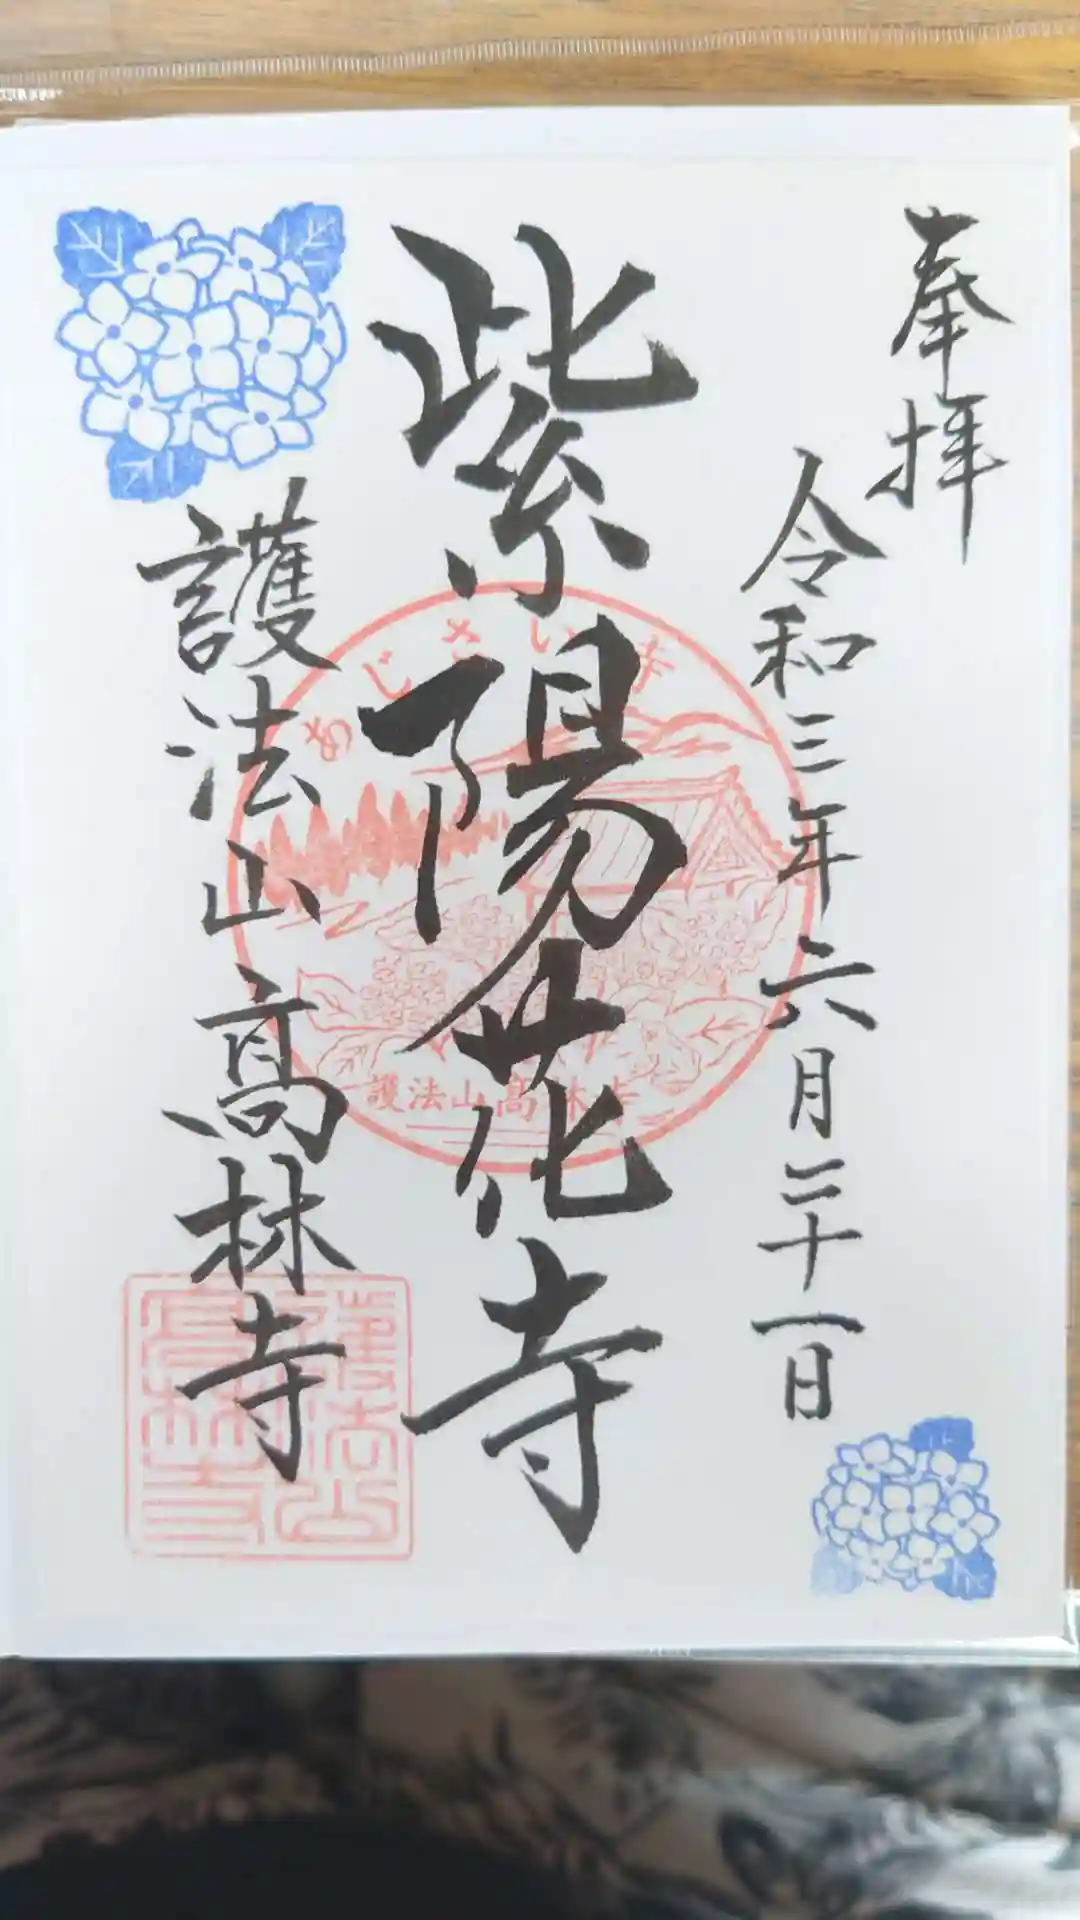 奉拝
令和三年六月二十一日
紫陽花寺
護法山高林寺
あじさい寺
護法山高林寺
護法山
高林寺